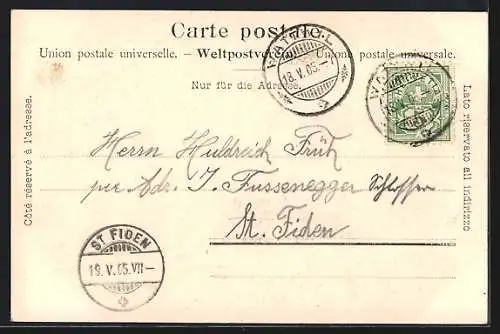 Carte postale.
Union postale universelle. – Weltpostverein – Unione postale universale.
Nur für die Adresse.
WATTWIL
18.V.05.
Côté réservé à l'adresse.
Lato riservato all indirizzo
Herrn Huldreich Früh
per Adr. J. Fussenegger Schlosser
St. Fiden
ST. FIDEN
19.V.05.VII–